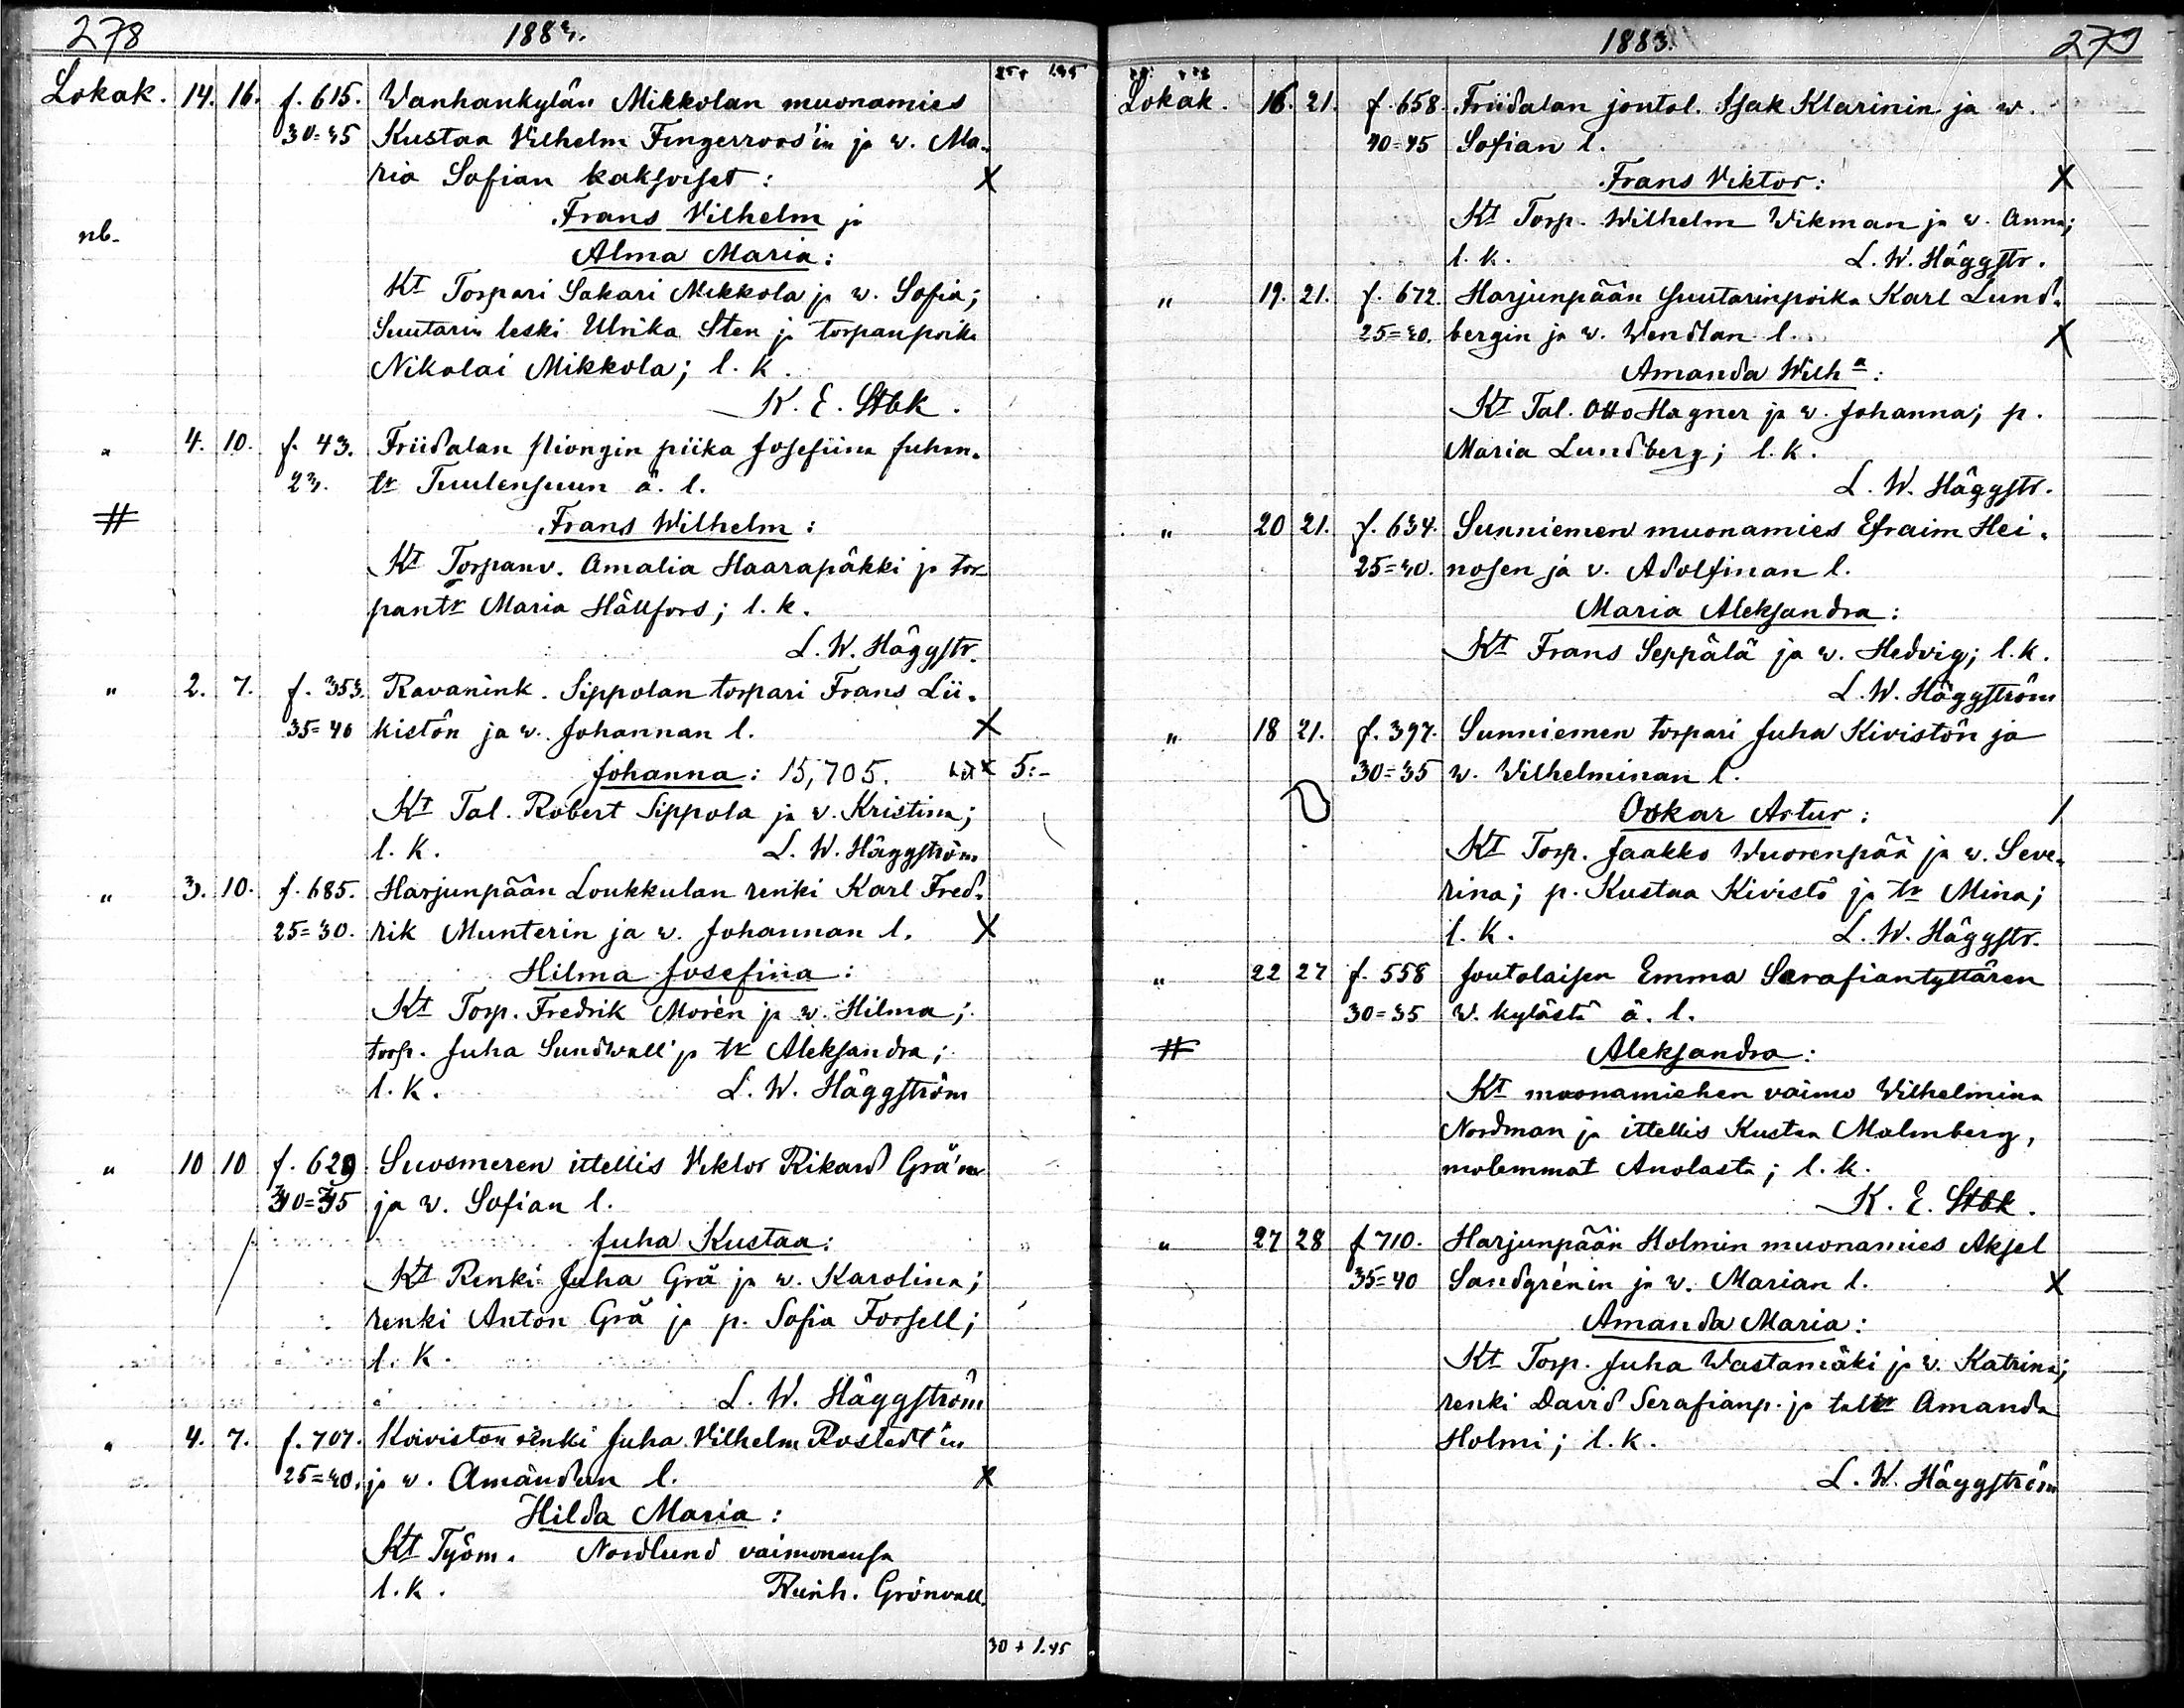 278
1883.
25+ 1.45
Lokak. 14. 16. f. 615. Wanhankylän Mikkolan muonamies
30=35 Kustaa Vilhelm Fingerroos'in ja w. Ma-
ria Sofian kaksoiset: X
Frans Vilhelm ja
nb.
Alma Maria:
Kt Torpari Sakari Mikkola ja w. Sofia;
Suutarin leski Ulrika Sten ja torpanpoika
Nikolai Mikkola; l. k.
K. E. Stbk.
" 4. 10. f. 43. Friidalan piika Josefiina Juhan-
23. tr Tuulensuun ä. l.
# Frans Wilhelm:
Kt Torpanv. Amalia Haarapäkki ja tor-
pantr Maria Hällfors; l. k.
L. W. Häggstr.
" 2. 7. f. 353. Ravanink. Sippolan torpari Frans Lii-
35=40 kistön ja w. Johannan l. X
Johanna: 15,705. 5:-
Kt Tal. Robert Sippola ja v. Kristina;
l. k. L. W. Häggström
" 3. 10. f. 685. Harjunpään Loukkulan renki Karl Fred-
25=30. rik Munterin ja w. Johannan l. X
Hilma Josefina:
Kt Torp. Fredrik Morén ja w. Hilma;
torp. Juha Sundwall ja tr Aleksandra;
l. k. L. W. Häggström
" 10 10 f. 629. Suosmeren ittellis Viktor Rikard Grå'n
ja w. Sofian l.
Juha Kustaa:
Kt Renki Juha Grå ja w. Karolina;
renki Anton Grå ja p. Sofia Forsell;
l. k.
L. W. Häggström
" 4. 7. f. 707. Koiviston renki Juha Vilhelm Rostedt'in
25=30. ja w. Amandan l. X
Hilda Maria:
Kt Työm. Nordlund vaimonensa
l. k. Reinh. Grönvall.
30 + 1.45
1883.
279
Lokak. 16. 21. f. 658. Friidalan joutol. Isak Klarinin ja w.
40=45 Sofian l.
Frans Viktor: X
Kt Torp. Wilhelm Wikman ja w. Anna;
l. k. L. W. Häggstr.
" 19. 21. f. 672. Harjunpään Suutarinpoika Karl Lund-
25=30. bergin ja w. Wendlan l. X
Amanda Wilha:
Kt Tal. Otto Hagner ja w. Johanna; p.
Maria Lundberg; l. k.
L. W. Häggstr.
" 20 21. f. 634. Sunniemen muonamies Efraim Hei-
25=30. nosen ja v. Adolfinan l.
Maria Aleksandra:
Kt Frans Seppälä ja w. Hedvig; l. k.
L. W. Häggström
" 18 21. f. 397. Sunniemen torpari Juha Kivistön ja
30=35 w. Wilhelminan l.
Oskar Artur: /
Kt Torp. Jaakko Wuorenpää ja w. Seve-
rina; p. Kustaa Kivistö ja tr Mina;
l. k. L. W. Häggstr.
" 22 27 f. 558 Joutolaisen Emma Serafiantyttären
30=35 W. kylästä ä. l.
# Aleksandra:
Kt muonamiehen vaimo Wilhelmina
Nordman ja ittellis Kustaa Malmberg,
molemmat Anolasta; l. k.
K. E. Stbk.
" 27 28 f 710. Harjunpään Holmin muonamies Aksel
35=40 Sandgrénin ja w. Marian l. X
Amanda Maria:
Kt Torp. Juha Wastamäki ja v. Katrina;
renki David Serafianp. ja taltr Amanda
Holmi; l. k.
L. W. Häggström